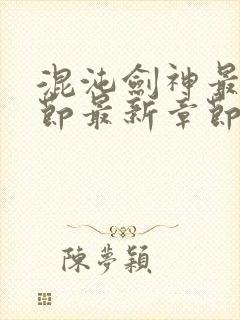 混沌劍神最
節最新章節
陳夢穎